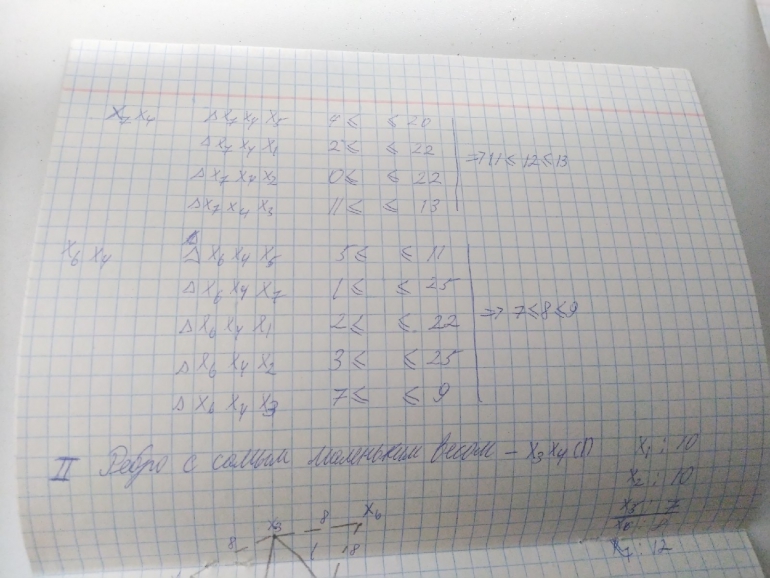 x₇x₄ Δx₇x₄x₅ 4 ≤ ≤ 20
Δx₇x₄x₁ 2 ≤ ≤ 22
Δx₇x₄x₂ 0 ≤ ≤ 22
Δx₇x₄x₃ 11 ≤ ≤ 13
⇒ 11 ≤ 12 ≤ 13
x₆x₄ Δx₆x₄x₅ 5 ≤ ≤ 11
Δx₆x₄x₇ 1 ≤ ≤ 25
Δx₆x₄x₁ 2 ≤ ≤ 22
Δx₆x₄x₂ 3 ≤ ≤ 25
Δx₆x₄x₃ 7 ≤ ≤ 9
⇒ 7 ≤ 8 ≤ 9
II Ребро с самым маленьким весом – x₃x₄(1)
x₁ : 10
x₂ : 10
x₅ : 7
x₆ :
x₇ : 12
x₃ 8 x₆
8 18